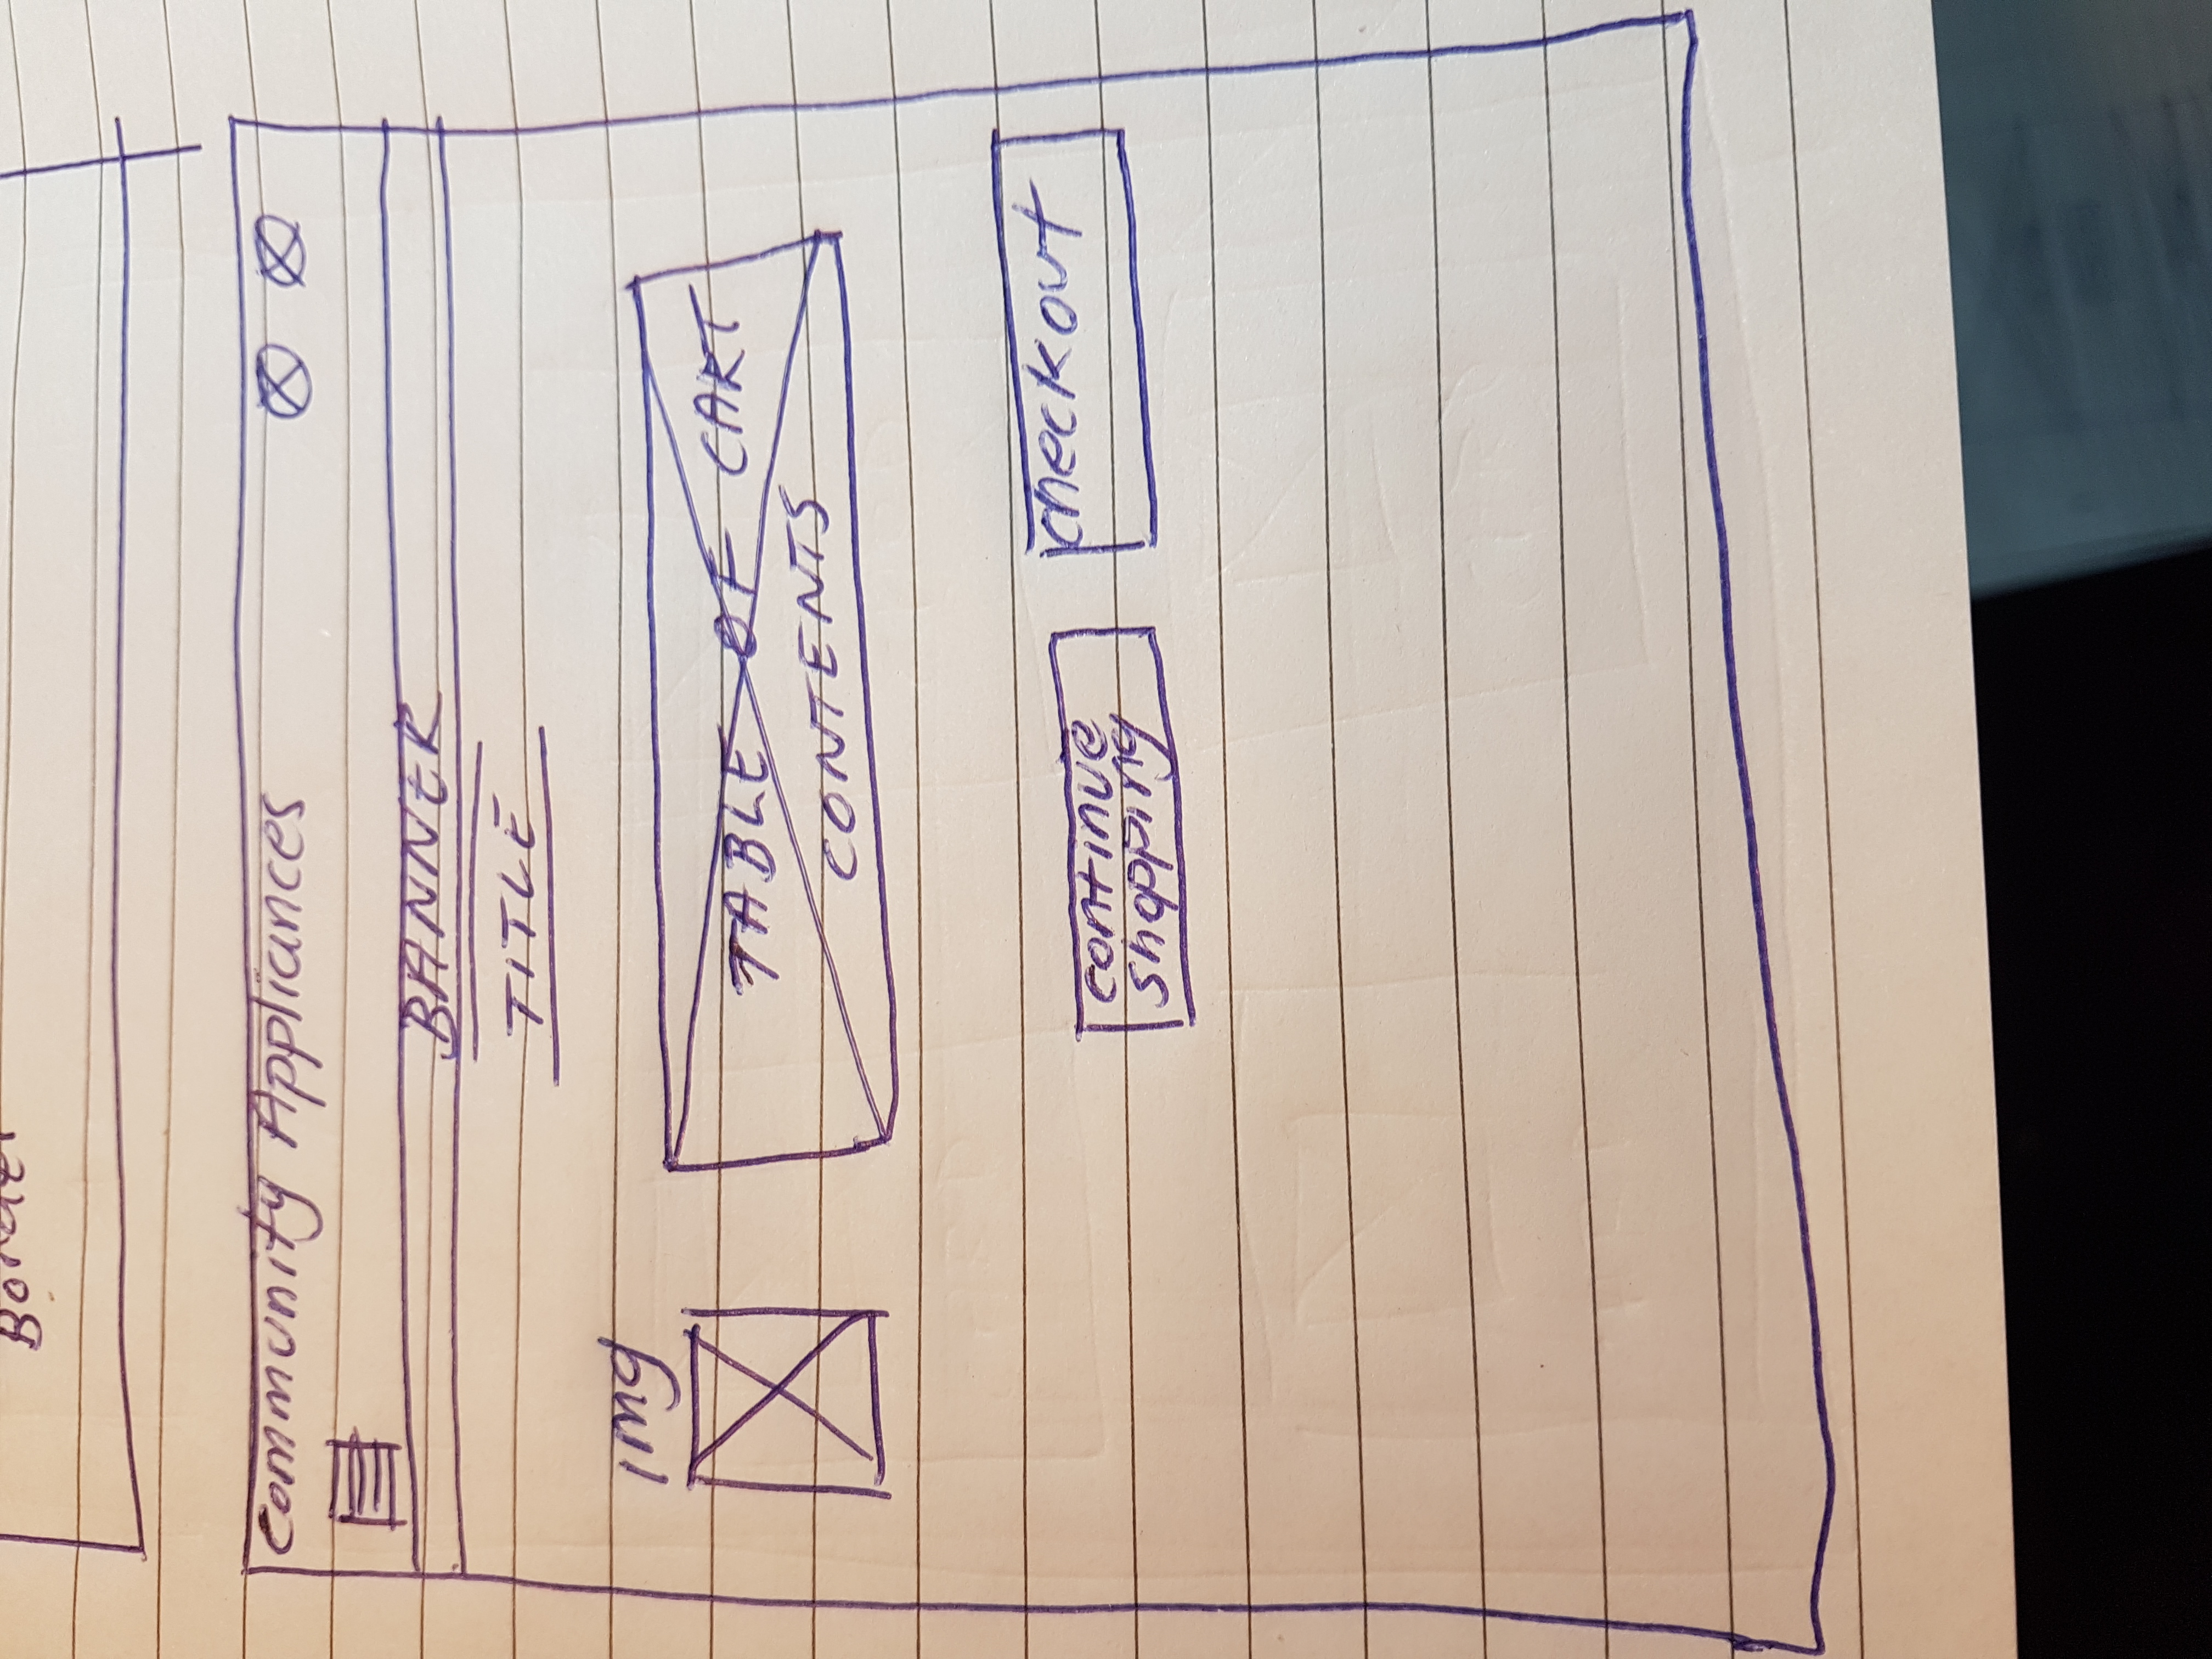 Border
Community Appliances
BANNER
TITLE
img
TABLE OF CART
CONTENTS
continue
shopping
checkout